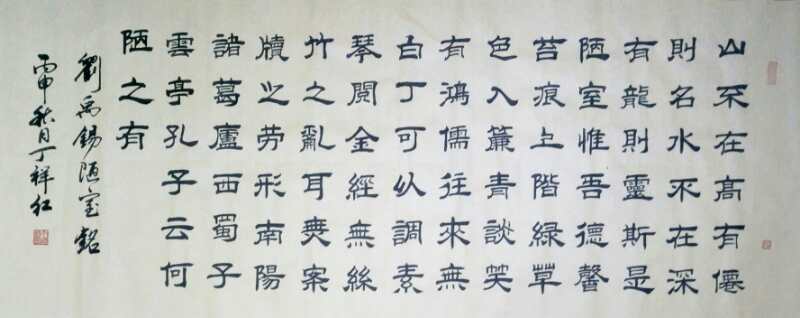 山不在高有僊
則名水不在深
有龍則靈斯是
陋室惟吾德馨
苔痕上階綠草
色入簾青談笑
有鴻儒往來無
白丁可以調素
琴閱金經無絲
竹之亂耳無案
牘之劳形南陽
諸葛廬西蜀子
雲亭孔子云何
陋之有
劉禹錫陋室銘
丙申秋月丁祥红